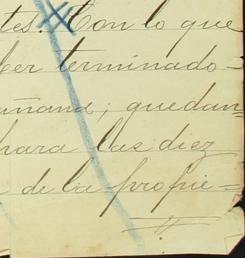 tes. Con lo que
ber terminado-
ñana, quedan-
para las diez
de la propie=